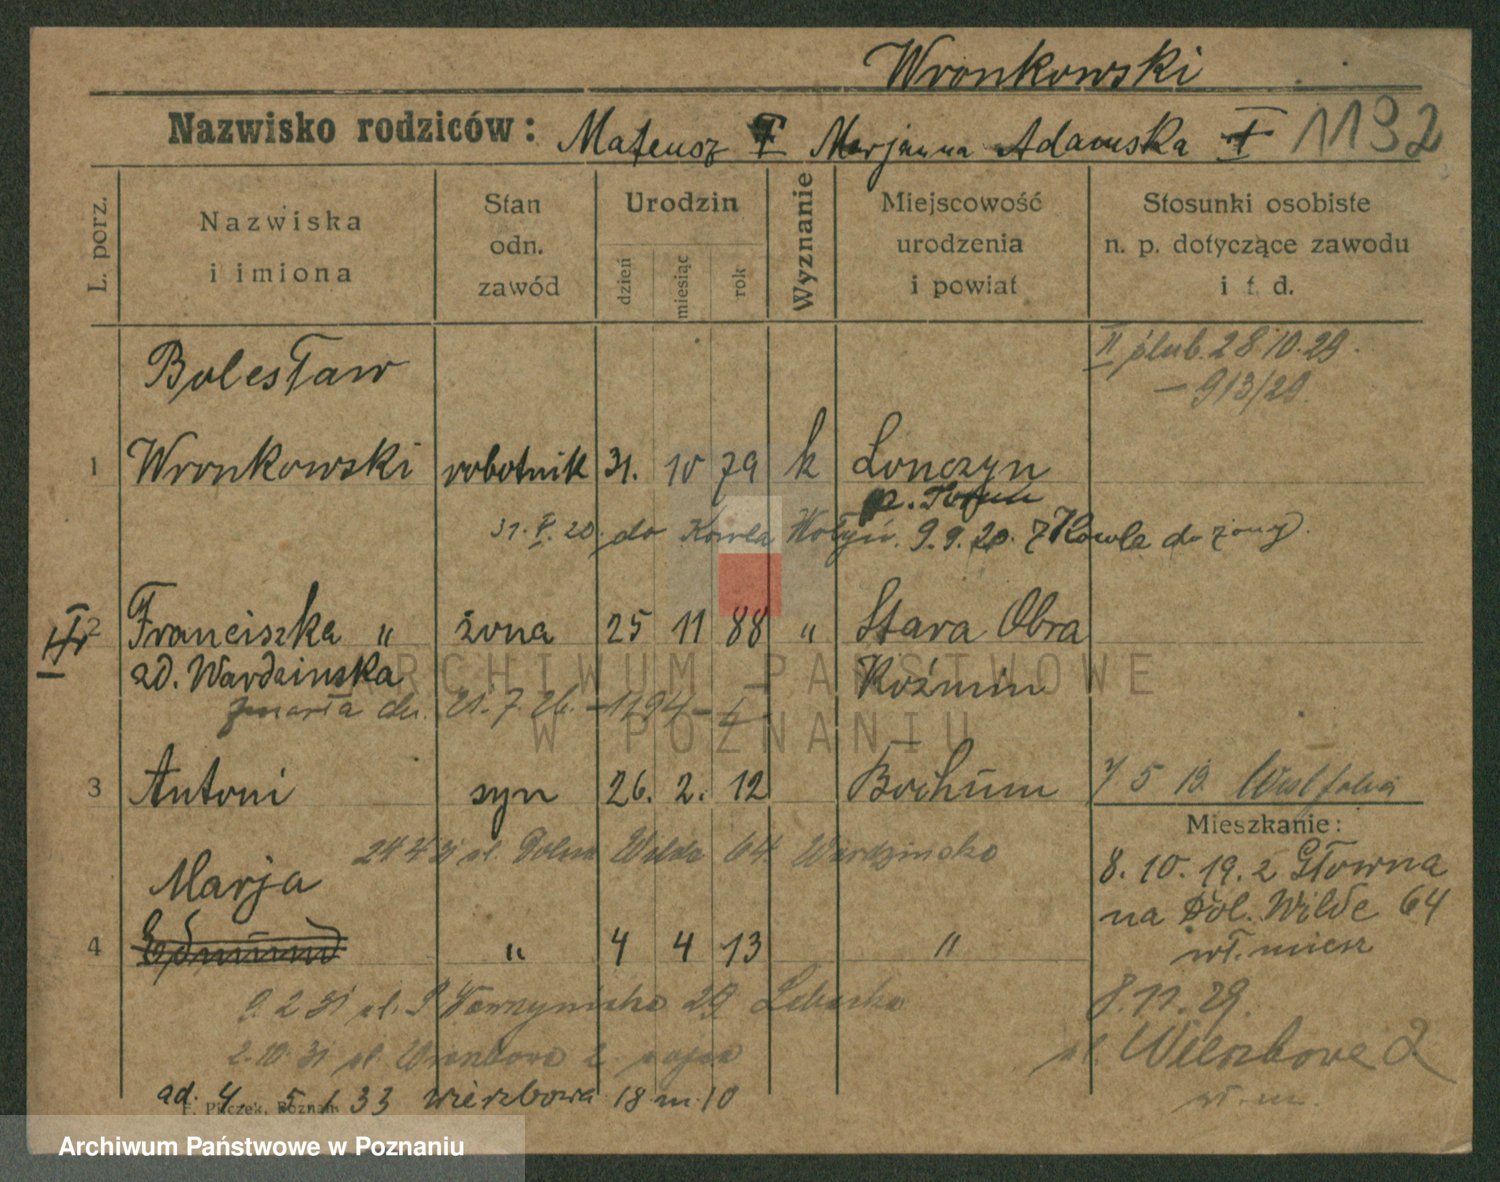 Wronkowski
Nazwisko rodziców: Mateusz † Marjanna Adamska † 1192
L. porz.
Nazwiska i imiona
Stan odn. zawód
Urodzin
dzień miesiąc rok
Wyznanie
Miejscowość urodzenia i powiat
Stosunki osobiste n. p. dotyczące zawodu i t. d.
Bolesław
II ślub. 28 10. 29.
– 913/29.
1 Wronkowski robotnik 31. 10 79 k Lonczyn
p. Toruń
31. V. 20. do Kowla Wołyń. 9. 9. 20. z Kowla do żony.
2 Franciszka " żona 25 11 88 " Stara Obra
zd. Wardzinska Koźmin
zmarła dn. 21. 7. 26. – 1194 – I
3 Antoni syn 26. 2. 12 Bochum 7 5 19 Westfalia
Mieszkanie:
24 ul. Dolna Wilda 64 Wardzinska
8. 10. 19. z Głowna
Marja
na Dol. Wilde 64
4 Edmund " 4 4 13 "
wł. miesz
9. 2 31 ul. 29
8. 11. 29.
2. 10. 31 ul. 2
ul. Wierzbowe 2
wł. m.
ad. 4. 5 1 33 Wierzbowa 18 m. 10
F. Pilczek, Poznań
ARCHIWUM PAŃSTWOWE
W POZNANIU
Archiwum Państwowe w Poznaniu